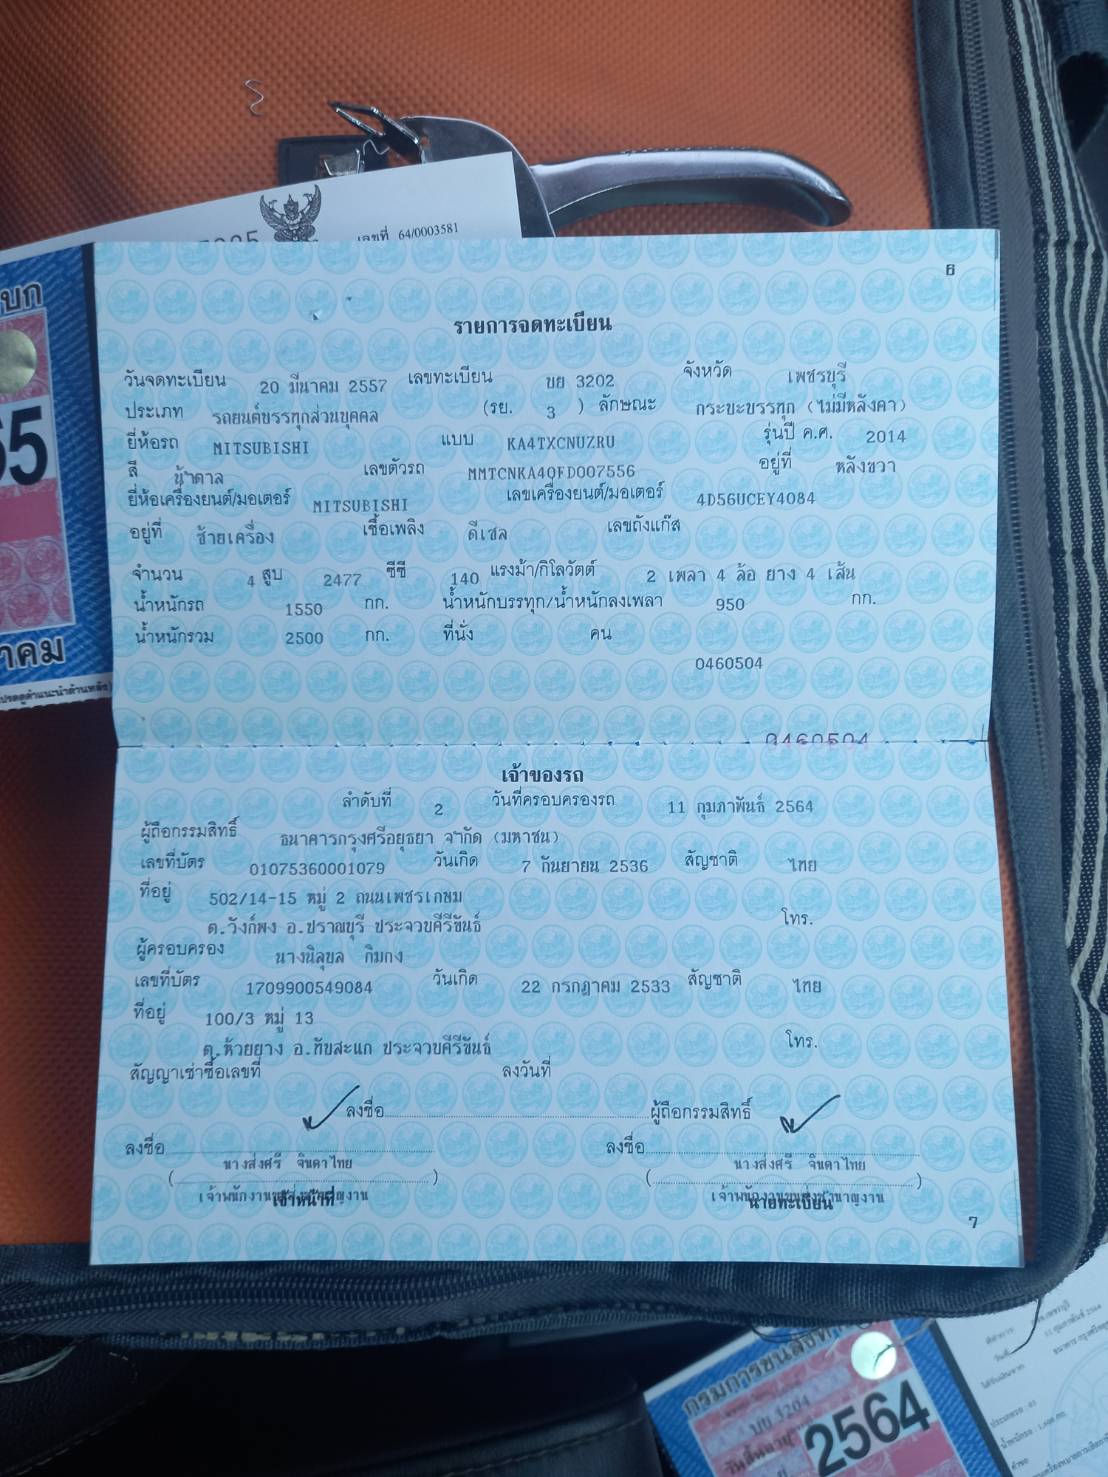 เลขที่ 64/0003581
6
รายการจดทะเบียน
วันจดทะเบียน 20 มีนาคม 2557 เลขทะเบียน บย 3202 จังหวัด เพชรบุรี
ประเภท รถยนต์บรรทุกส่วนบุคคล (รย. 3 ) ลักษณะ กระบะบรรทุก (ไม่มีหลังคา)
ยี่ห้อรถ MITSUBISHI แบบ KA4TXCNUZRU รุ่นปี ค.ศ. 2014
สี น้ำตาล เลขตัวรถ MMTCNKA40FD007556 อยู่ที่ หลังขวา
ยี่ห้อเครื่องยนต์/มอเตอร์ MITSUBISHI เลขเครื่องยนต์/มอเตอร์ 4D56UCEY4084
อยู่ที่ ซ้ายเครื่อง เชื้อเพลิง ดีเซล เลขถังแก๊ส
จำนวน 4 สูบ 2477 ซีซี 140 แรงม้า/กิโลวัตต์ 2 เพลา 4 ล้อ ยาง 4 เส้น
น้ำหนักรถ 1550 กก. น้ำหนักบรรทุก/น้ำหนักลงเพลา 950 กก.
น้ำหนักรวม 2500 กก. ที่นั่ง คน
0460504
0460504
เจ้าของรถ
ลำดับที่ 2 วันที่ครอบครองรถ 11 กุมภาพันธ์ 2564
ผู้ถือกรรมสิทธิ์ ธนาคารกรุงศรีอยุธยา จำกัด (มหาชน)
เลขที่บัตร 01075360001079 วันเกิด 7 กันยายน 2536 สัญชาติ ไทย
ที่อยู่ 502/14-15 หมู่ 2 ถนนเพชรเกษม
ต.วังก์พง อ.ปราณบุรี ประจวบคีรีขันธ์ โทร.
ผู้ครอบครอง นางนิลุบล กิมกง
เลขที่บัตร 1709900549084 วันเกิด 22 กรกฎาคม 2533 สัญชาติ ไทย
ที่อยู่ 100/3 หมู่ 13
ต.ห้วยยาง อ.ทับสะแก ประจวบคีรีขันธ์ โทร.
สัญญาเช่าซื้อเลขที่ ลงวันที่
ลงชื่อ ผู้ถือกรรมสิทธิ์
ลงชื่อ ลงชื่อ
นางส่งศรี จินดาไทย นางส่งศรี จินดาไทย
( ) ( )
เจ้าหน้าที่ นายทะเบียน
7
บก
65
าคม
กรมการขนส่งทาง
บย 3204
2564
วันสิ้นอายุ